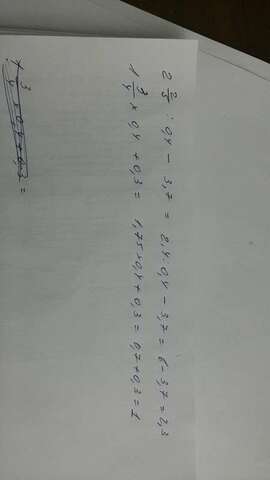 2 2/5 : 0,4 - 3,7 = 2,4 : 0,4 - 3,7 = 6 - 3,7 = 2,3
1 3/4 × 0,4 + 0,3 = 1,75 × 0,4 + 0,3 = 0,7 + 0,3 = 1